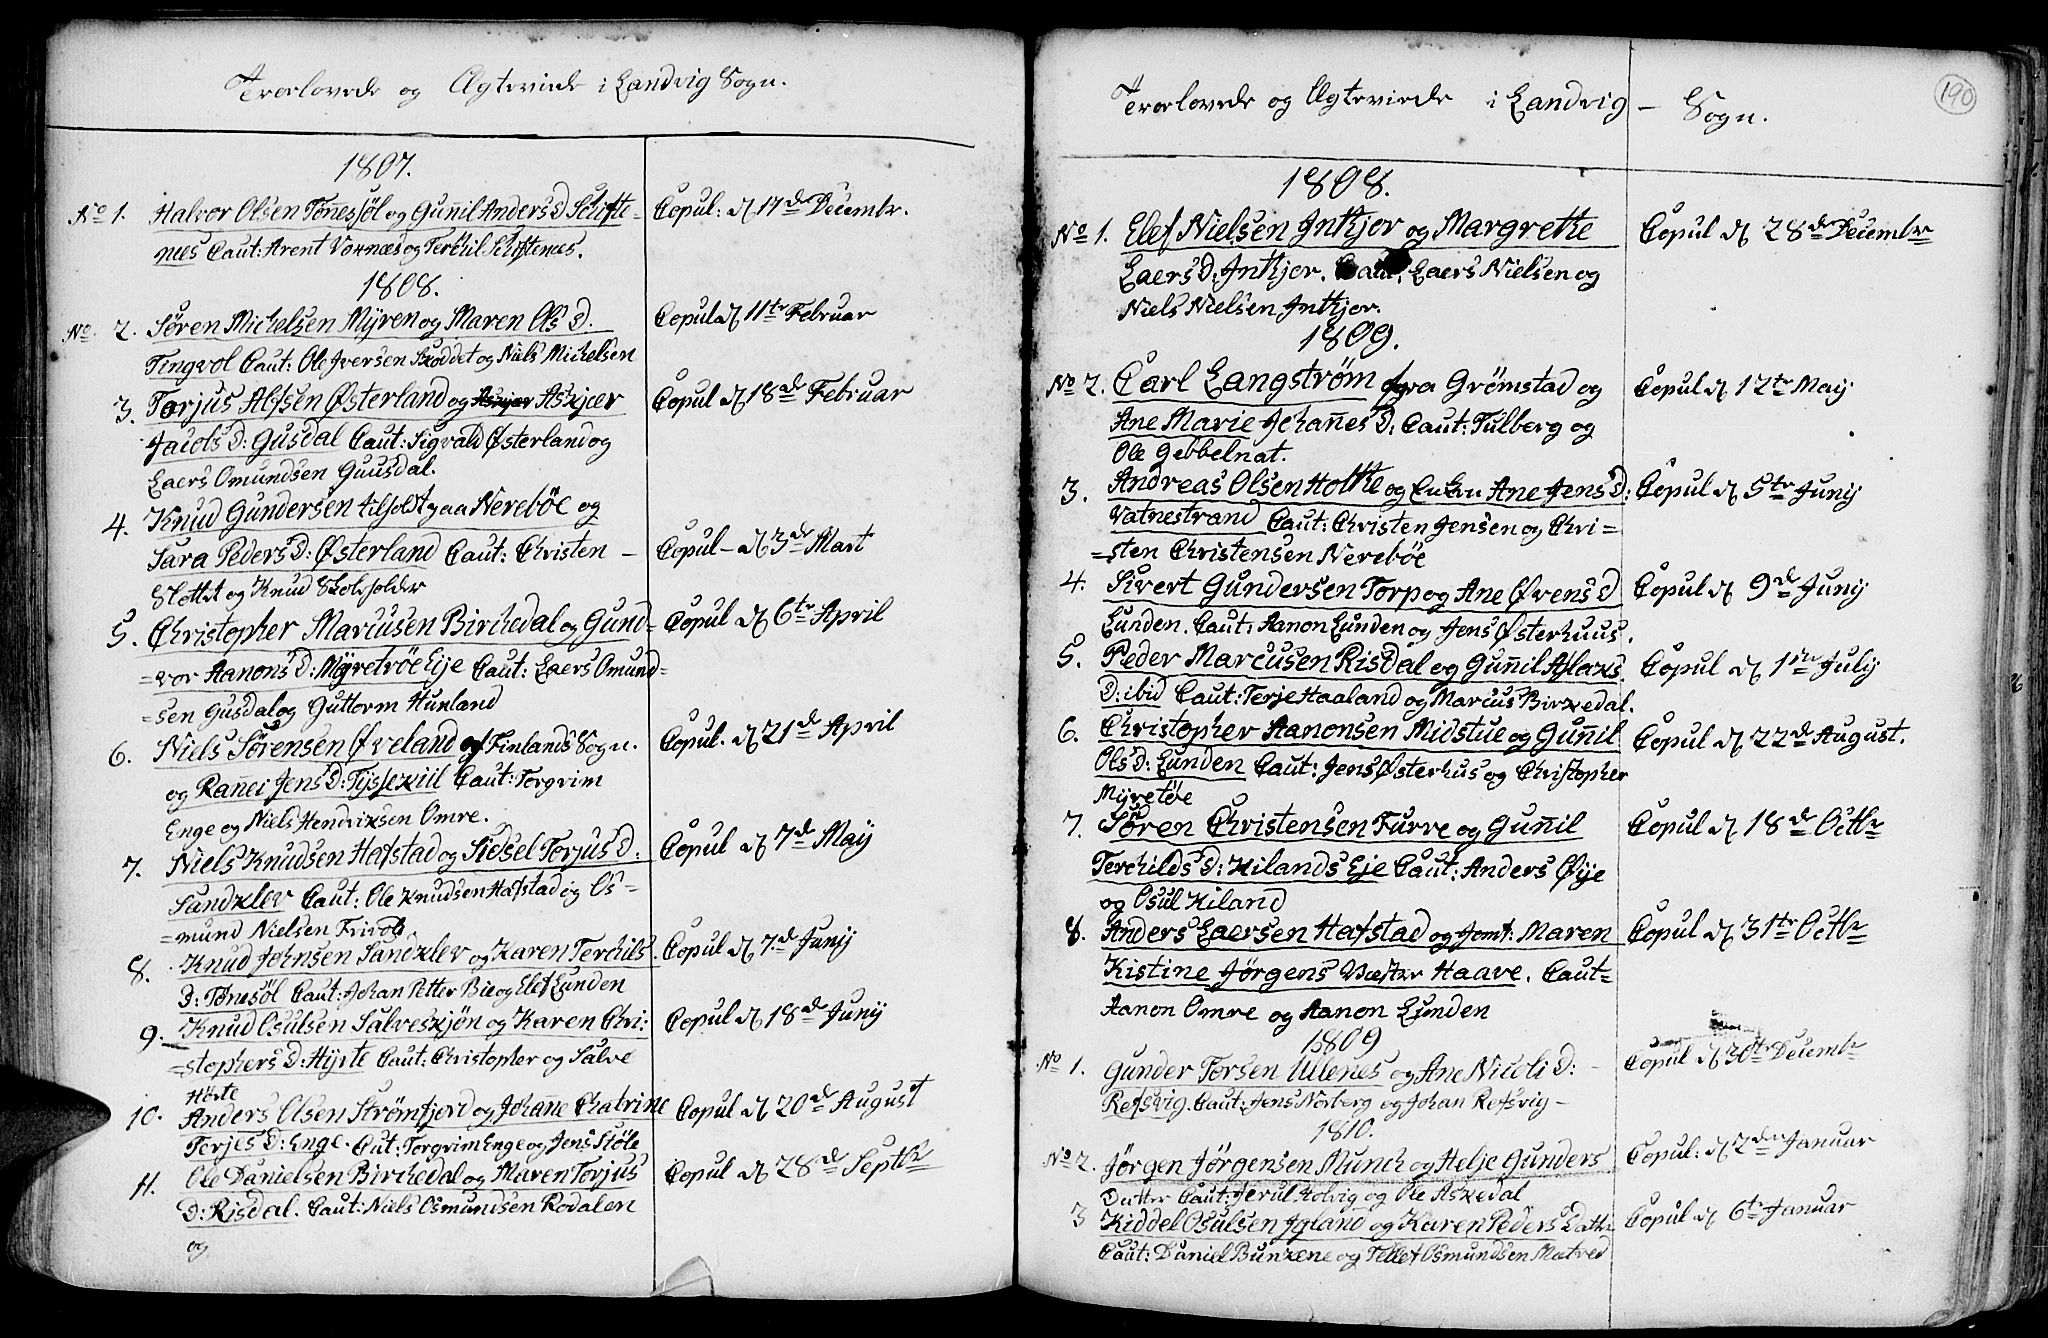 Trorlovede og Ægteviede i Landvig Sogn.
1807.
No 1. Halvor Olsen Tōnesøl og Guñil Anders D Skifte-
nees Caut: Arent Vornæs og Terchil Skiftenes.
Copul: d 17de Decembr.
1808.
No. 2. Søren Michelsen Myren og Maren Ols D.
Tingvol Caut: Ole Iversen Skoddet og Niels Michelsen
Copul d 11te Februar
3. Torjus Alfsen Østerland og Askjær
Jacobs D: Gusdal Caut: Sigvald Østerland og
Laers Omundsen Guusdal.
Copul d 18de Februar
4. Knud Gundersen tilholt paa Nerebøe og
Sara Peders D: Østerland Caut: Christen -
Slottet og Knud Skoleholder
Copul - d 3de Mart
5. Christopher Marcusen Birchedal og Gund-
=vor Aanons D: Myretrøe Eje Caut: Laers Omund=
=sen Gusdal og Guttorm Hunland
Copul d 6te April
6. Niels Sørensen Øveland af Finlands Sogn.
og Rañei Jens D: Tyssekiil Caut: Torgrim
Enge og Niels Hendriksen Omre.
Copul. d 21de April
7. Niels Knudsen Hafstad og Sidsel Torjus D:
Sandklev Caut: Ole Knudsen Hafstad og Os=
=mund Nielsen Frivold.
Copul d 7de May
8. Knud Johnsen Sandklev og Karen Terchils
D: Tønesøl Caut: Johan Petter Bie og Elef Lunden
Copul d 7de Junij
9. Knud Osulsen Salveskjøn og Karen Chri:
=stophers D: Hyrte Caut: Christopher og Salve
Hørte
Copul d 18de Junij
10. Anders Olsen Strømfjord og Johañe Chatrine
Terjes D: Enge. Caut: Torgrim Enge og Jens Støle
Copul d 20de August
11. Ole Danielsen Birchedal og Maren Torjus
D: Risdal. Caut: Niels Osmundsen Rodalen
og
Copul d 28de Septbr
Trorlovede og Ægteviede i Landvig - Sogn.
190
1808.
No 1. Elef Nielsen Inthjor og Margrethe
Laers D: Inthjor. Caut. Laers Nielsen og
Niels Nielsen Inthjor.
Copul d 28de Decembr
1809.
No 2. Carl Langstrøm fra Grømstad og
Ane Marie Johañes D: Caut: Fulberg og
Ole Gebbelnat.
Copul d 12te May
3. Andreas Olsen Holthe og Enken Ane Jens D:
Vatnestrand Caut: Christen Jensen og Chri=
=sten Christensen Nerebøe
Copul d 5te Junij
4. Sivert Gundersen Torp og Ane Øvens D
Lunden. Caut: Aanon Lunden og Jens Østerhuus.
Copul d 9de Junij
5. Peder Marcusen Risdal og Guñil Aslaks
D: ibid Caut: Terje Haaland og Marcus Birkedal.
Copul d 1ste Julij
6. Christopher Aanonsen Midstue og Guñil
Ols D: Lunden Caut: Jens Østerhus og Christopher
Myretøe
Copul d 22de August.
7. Søren Christensen Furre og Guñil
Terchilds D: Kilands Eje Caut: Anders Øye
og Osul Kiland
Copul d 18de Octbr
8. Anders Laersen Hafstad og Jomf: Maren
Kistine Jørgens Datter Haave. Caut-
Aanon Omre og Aanon Lunden
Copul d 31te Octbr
1809
No 1. Gunder Torsen Ullenes og Ane Nicoli D: -
Refsvig. Caut: Jens Norberg og Johan Refsvig -
Copul d 30te Decembr
1810.
No 2. Jørgen Jørgensen Munch og Helje Gunders
Datter Caut: Jerul Holvig og Ole Askedal
Copul: d 2den Januar
3 Kiddel Osulsen Igland og Karen Peders Datter
Caut: Daniel Bunkene og Tellef Osmundsen Mætved
Copul d 6te Januar